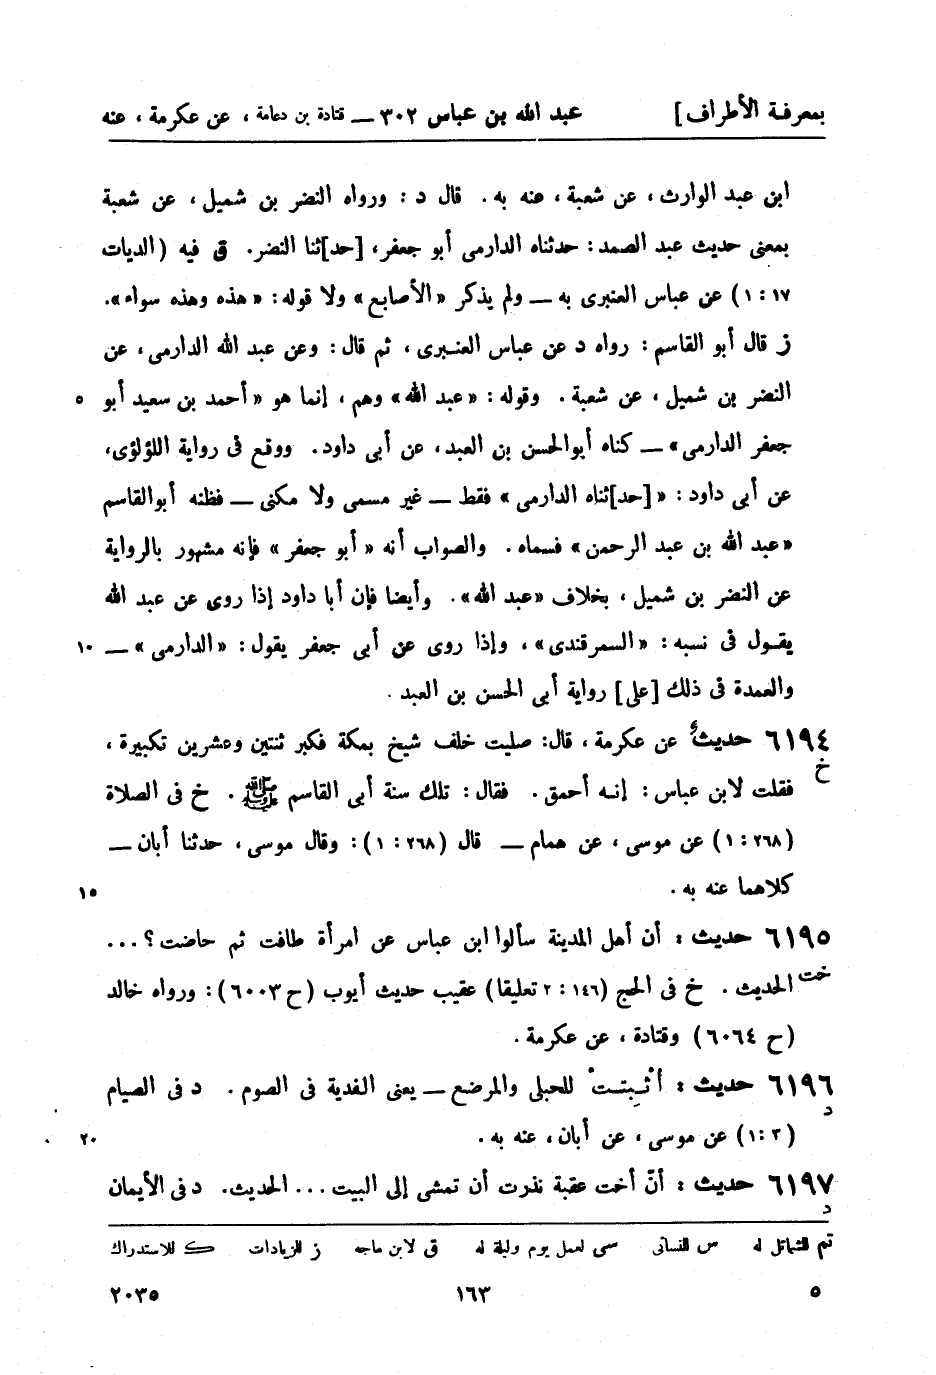 بمعرفة الأطراف] عبد الله بن عباس ٣٠٢ — قتادة بن دعامة ، عن عكرمة ، عنه
ابن عبد الوارث، عن شعبة، عنه به. قال د : ورواه النضر بن شميل، عن شعبة
بمعنى حديث عبد الصمد: حدثناه الدارمى أبو جعفر، [حد]ثنا النضر. ق فيه (الديات
١٧ : ١) عن عباس العنبرى به — ولم يذكر «الأصابع» ولا قوله: «هذه وهذه سواء».
ز قال أبو القاسم : رواه د عن عباس العنبرى ، ثم قال: وعن عبد الله الدارمى، عن
النضر بن شميل ، عن شعبة . وقوله : «عبد الله» وهم ، إنما هو «أحمد بن سعيد أبو ٥
جعفر الدارمى» — كناه أبوالحسن بن العبد، عن أبى داود. ووقع فى رواية اللؤلؤى،
عن أبى داود : «[حد]ثناه الدارمى» فقط — غير مسمى ولا مكنى — فظنه أبوالقاسم
«عبد الله بن عبد الرحمن» فسماه. والصواب أنه «أبو جعفر» فإنه مشهور بالرواية
عن النضر بن شميل ، بخلاف «عبد الله». وأيضا فإن أبا داود إذا روى عن عبد الله
يقول فى نسبه : «السمرقندى» ، وإذا روى عن أبى جعفر يقول: «الدارمى» — ١٠
والعمدة فى ذلك [على] رواية أبى الحسن بن العبد .
٦١٩٤ حديث عن عكرمة ، قال: صليت خلف شيخ بمكة فكبر ثنتين وعشرين تكبيرة ،
خ فقلت لابن عباس : إنه أحمق . فقال : تلك سنة أبى القاسم ﷺ . خ فى الصلاة
(٢٦٨ : ١) عن موسى ، عن همام — قال (٢٦٨ : ١): وقال موسى ، حدثنا أبان —
كلاهما عنه به . ١٥
٦١٩٥ حديث : أن أهل المدينة سألوا ابن عباس عن امرأة طافت ثم حاضت؟ ...
خت الحديث . خ فى الحج (١٤٦ : ٢ تعليقا) عقيب حديث أيوب (ح ٦٠٠٣): ورواه خالد
(ح ٦٠٦٤) وقتادة ، عن عكرمة .
٦١٩٦ حديث : أثبتت للحبلى والمرضع — يعنى الفدية فى الصوم . د فى الصيام
د (٣ : ١) عن موسى ، عن أبان ، عنه به . ٢٠
٦١٩٧ حديث : أنّ أخت عقبة نذرت أن تمشى إلى البيت ... الحديث. د فى الأيمان
د
تم للشمائل له س للنسائى سى لعمل يوم وليلة له ق لابن ماجه ز للزيادات ك للاستدراك
٥ ١٦٣ ٢٠٣٥